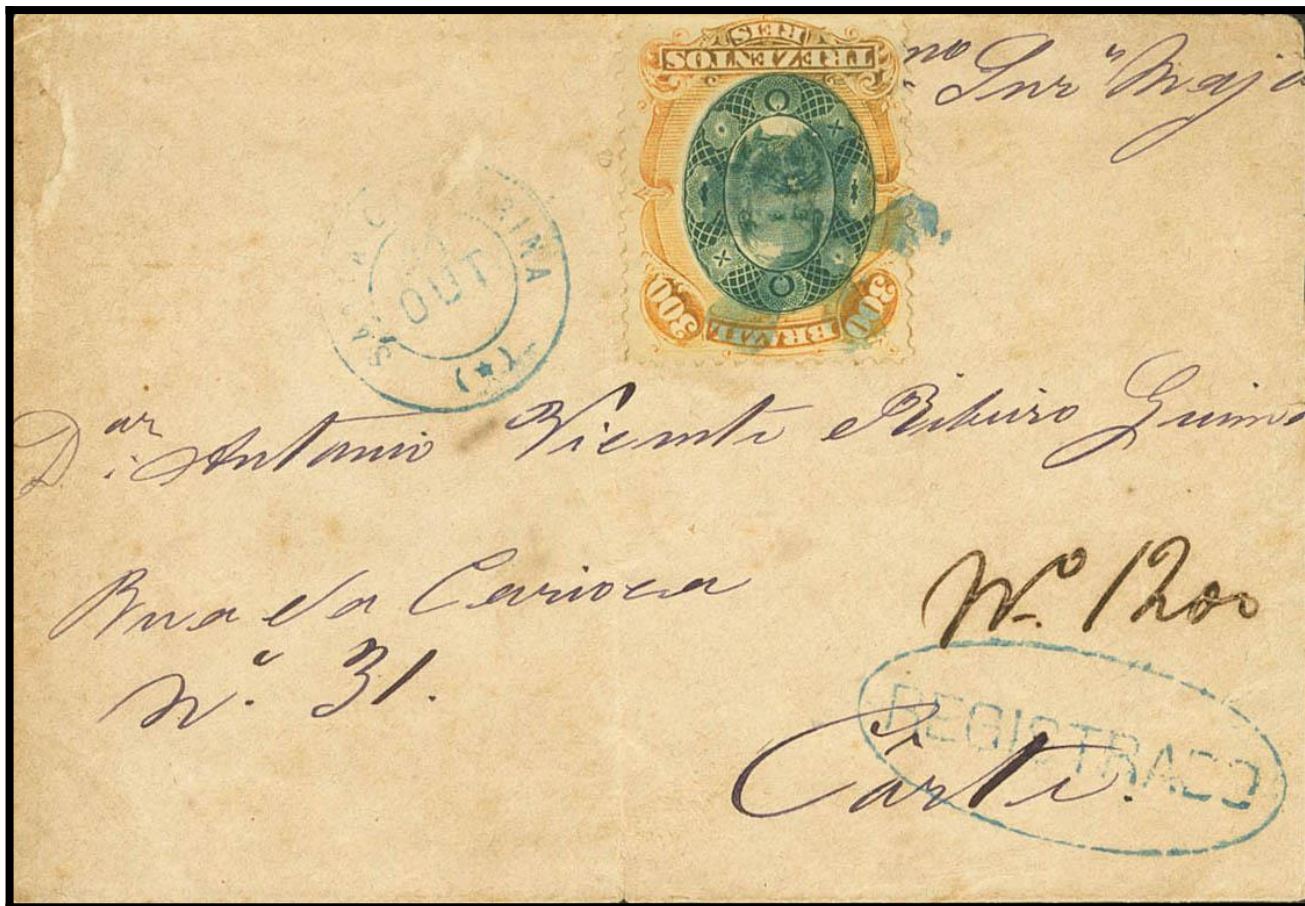 REIS
TREZENTOS
300 BRAZIL 300
Snr Majo
OUT
RINA
Dar Antonio Vicente Ribeiro Guima
Rua da Carioca
Nº 31.
Nº 1200
REGISTRADO
Côrte.